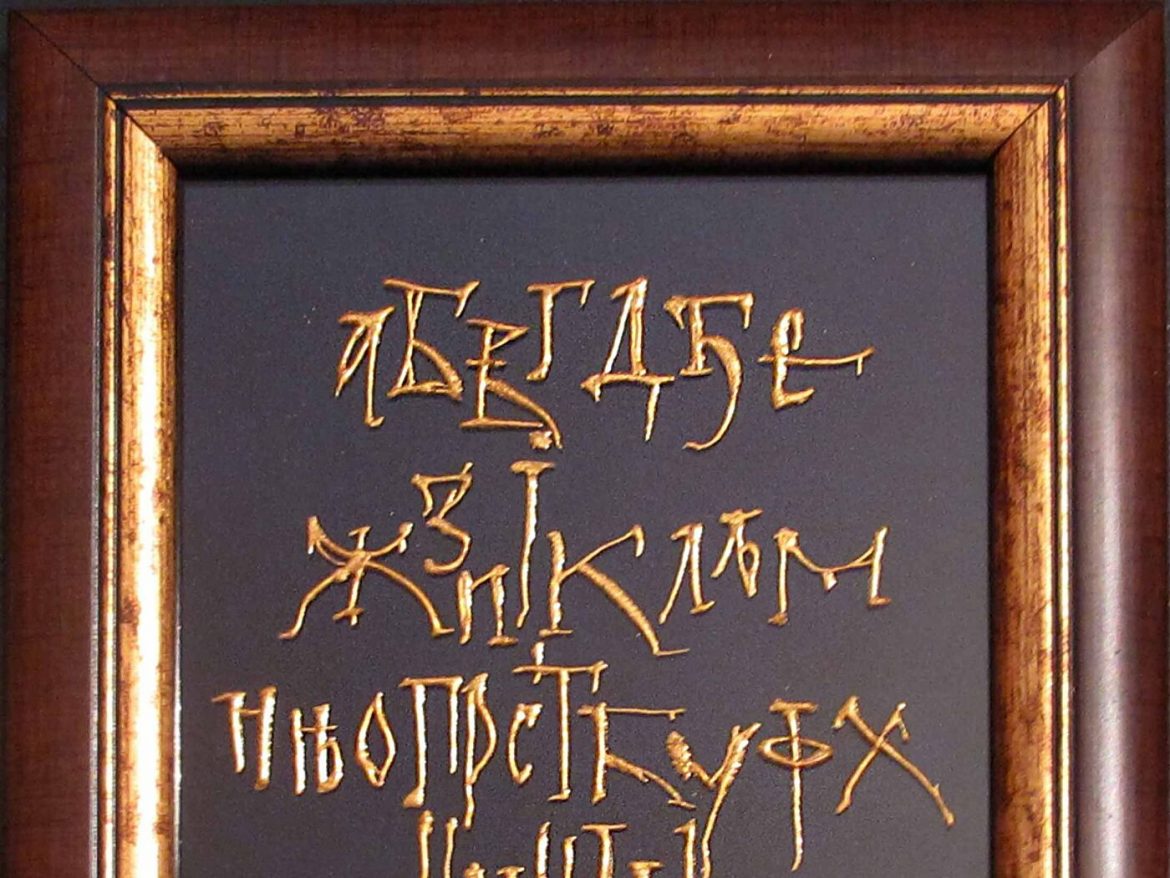 аБВГДЂе
ЖЗиЈКЛЉМ
НЊОПРСТЋУФХ